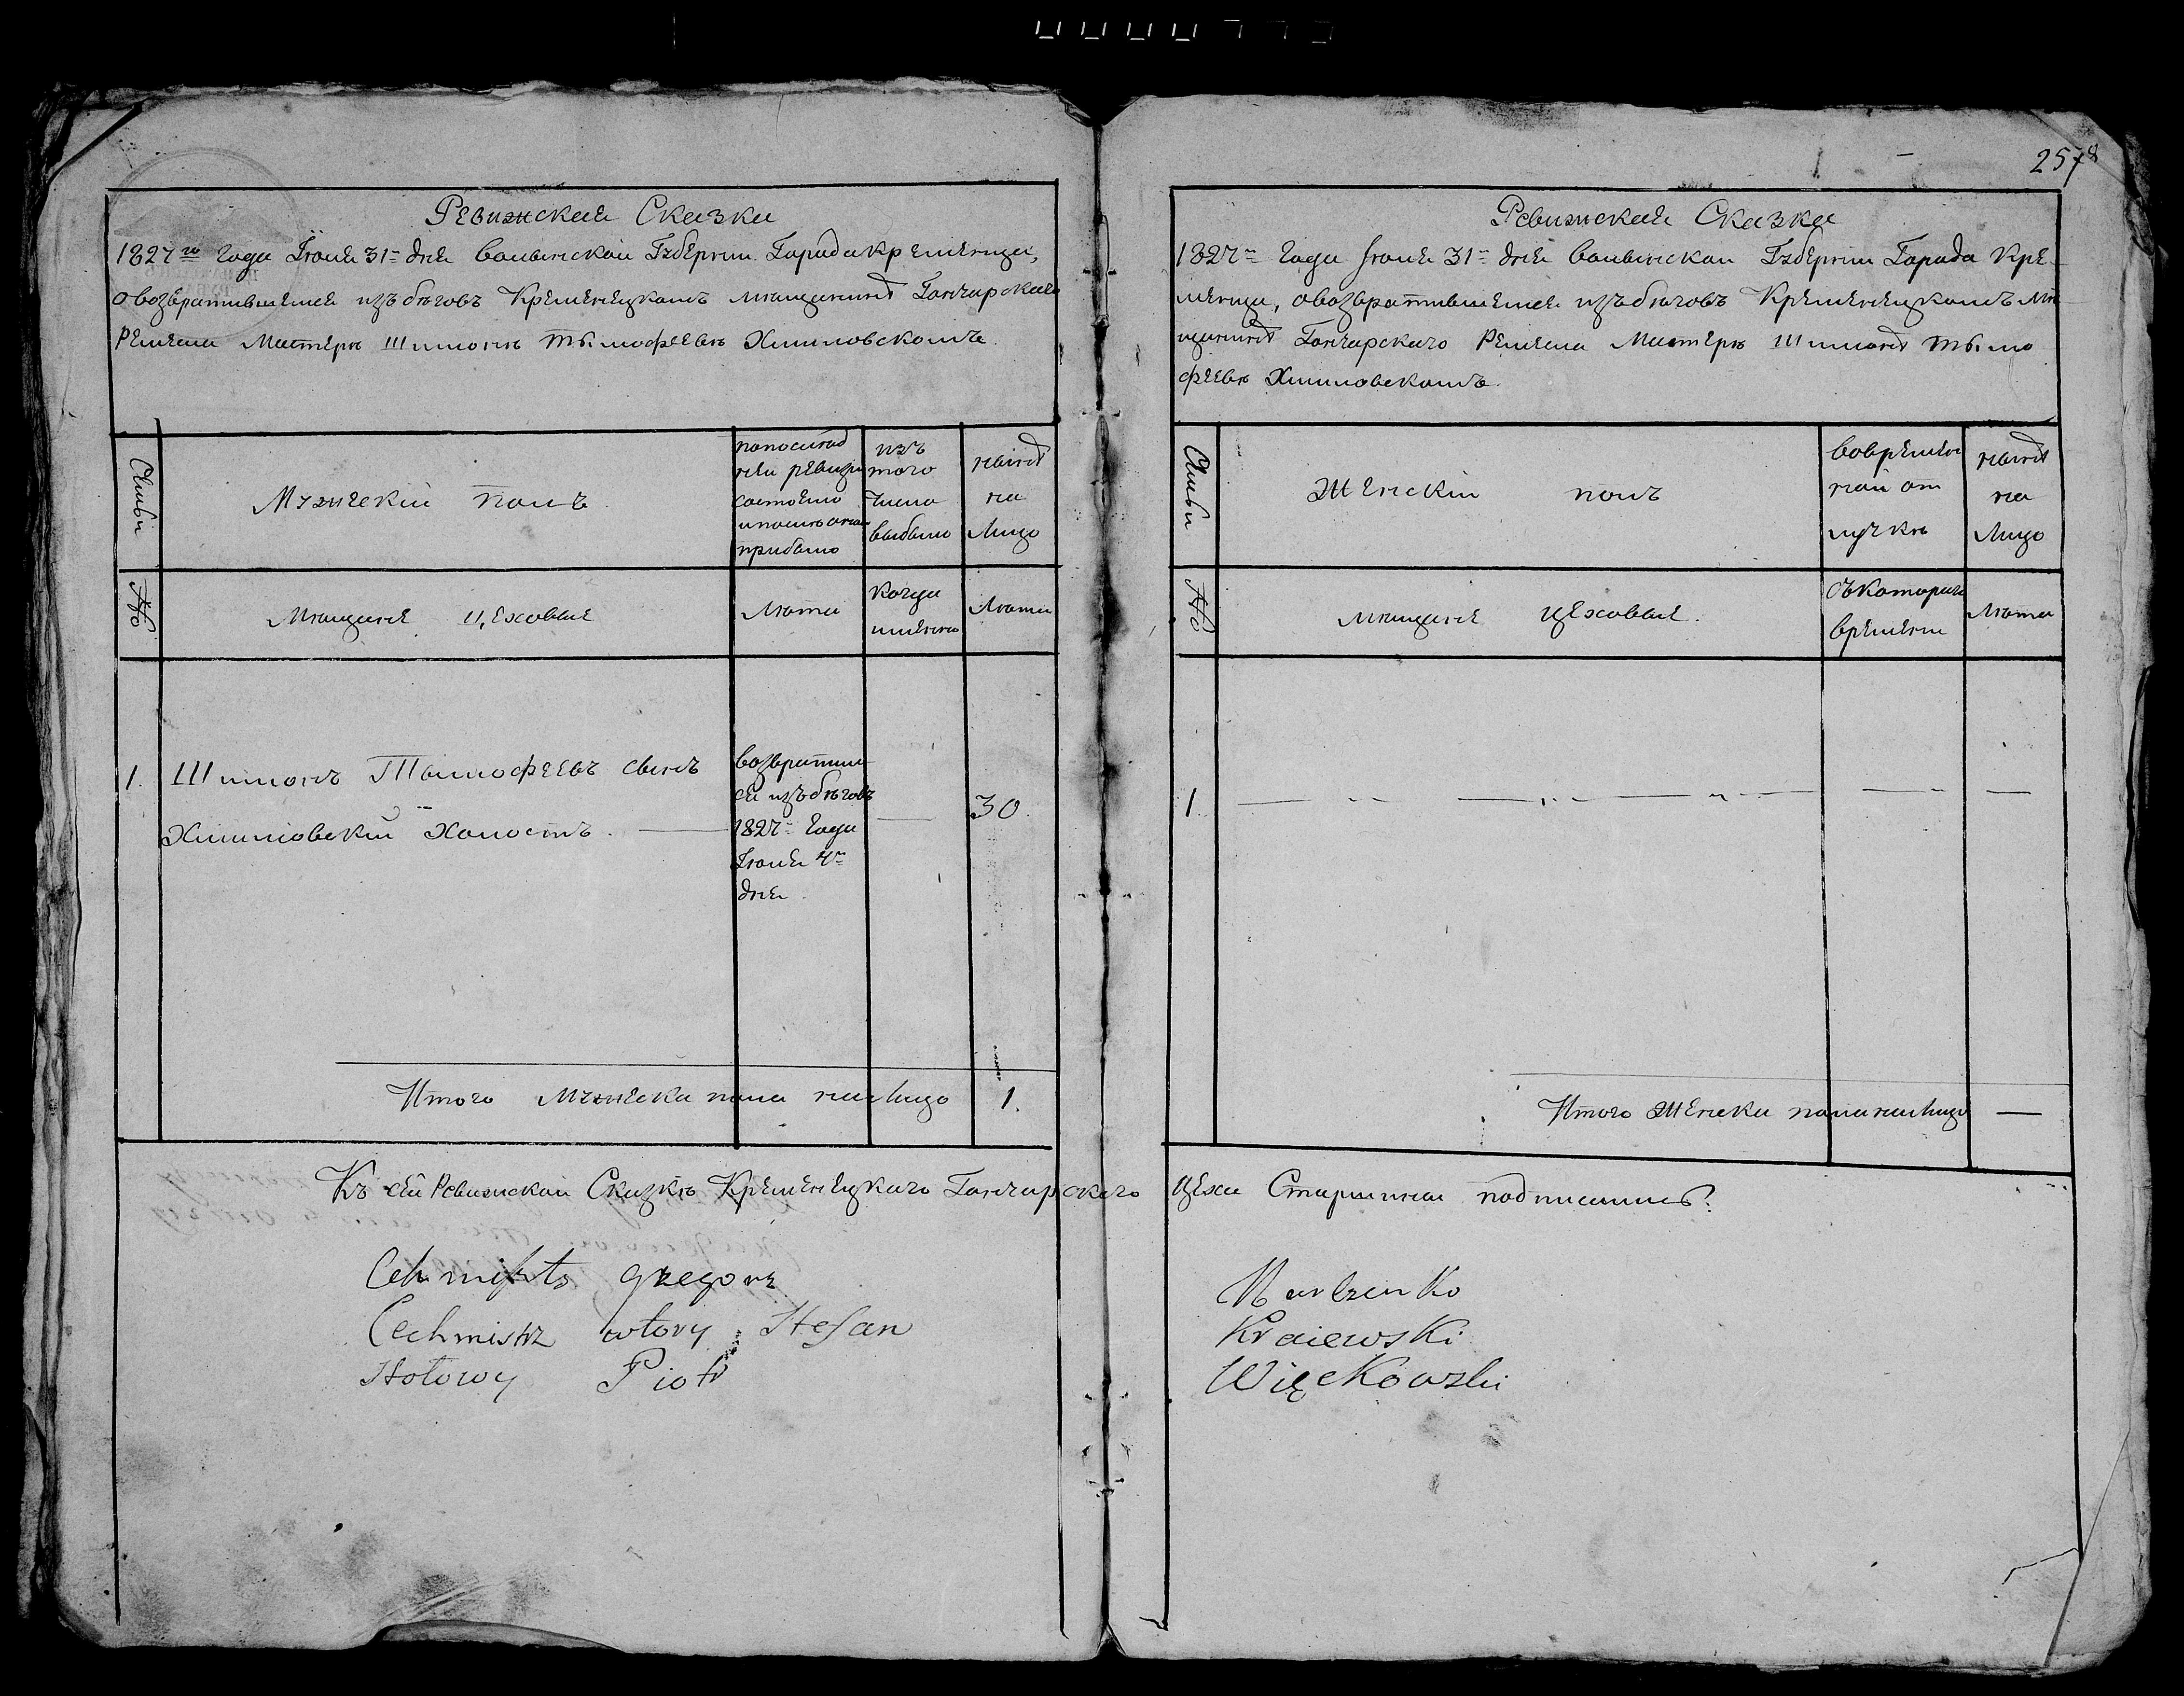 257
Ревижская Сказка
1827го года Іюля 31 дня Волынской Губерніи Города Кременца,
о возвратившемся изъ бѣговъ Кременецкомъ мѣщанинѣ Гончарскаго
Ремесла Мастерѣ Шимонѣ Тымофеевѣ Хмилювскомъ.
Семьи
Мужескій полъ
по послѣд
ней ревизіи
состояло
и послѣ оной
прибыло
изъ
того
числа
выбыло
нынѣ
на
лицо
№
Мѣщане цеховые
лѣта
когда
именно
лѣта
1. Шимонъ Тымофеевъ сынъ
Хмилювскій холостъ.
возвратил
ся изъ бѣговъ
1827 года
Іюля 4
дня
30.
Итого мужеска пола на лицо 1.
Ревижская Сказка
1827 года Іюля 31 дня Волынской Губерніи Города Кре-
менца, о возвратившемся изъ бѣговъ Кременецкомъ мѣ
щанинѣ Гончарскаго Ремесла Мастерѣ Шимонѣ Тымо
феевѣ Хмилювскомъ.
Семьи
Женскій полъ
во времен
ной от
лучкѣ
нынѣ
на
лицо
№
мѣщане цеховые.
съ котораго
времени
лѣта
1.
Итого женска пола на лицо —
Къ сей Ревижской Сказкѣ Кременецкаго Гончарскаго Цеха Старшины подписались:
Grzegorz
Cechmistrz wtory Stefan Kraiewski
Stołowy Piotr Więckowski